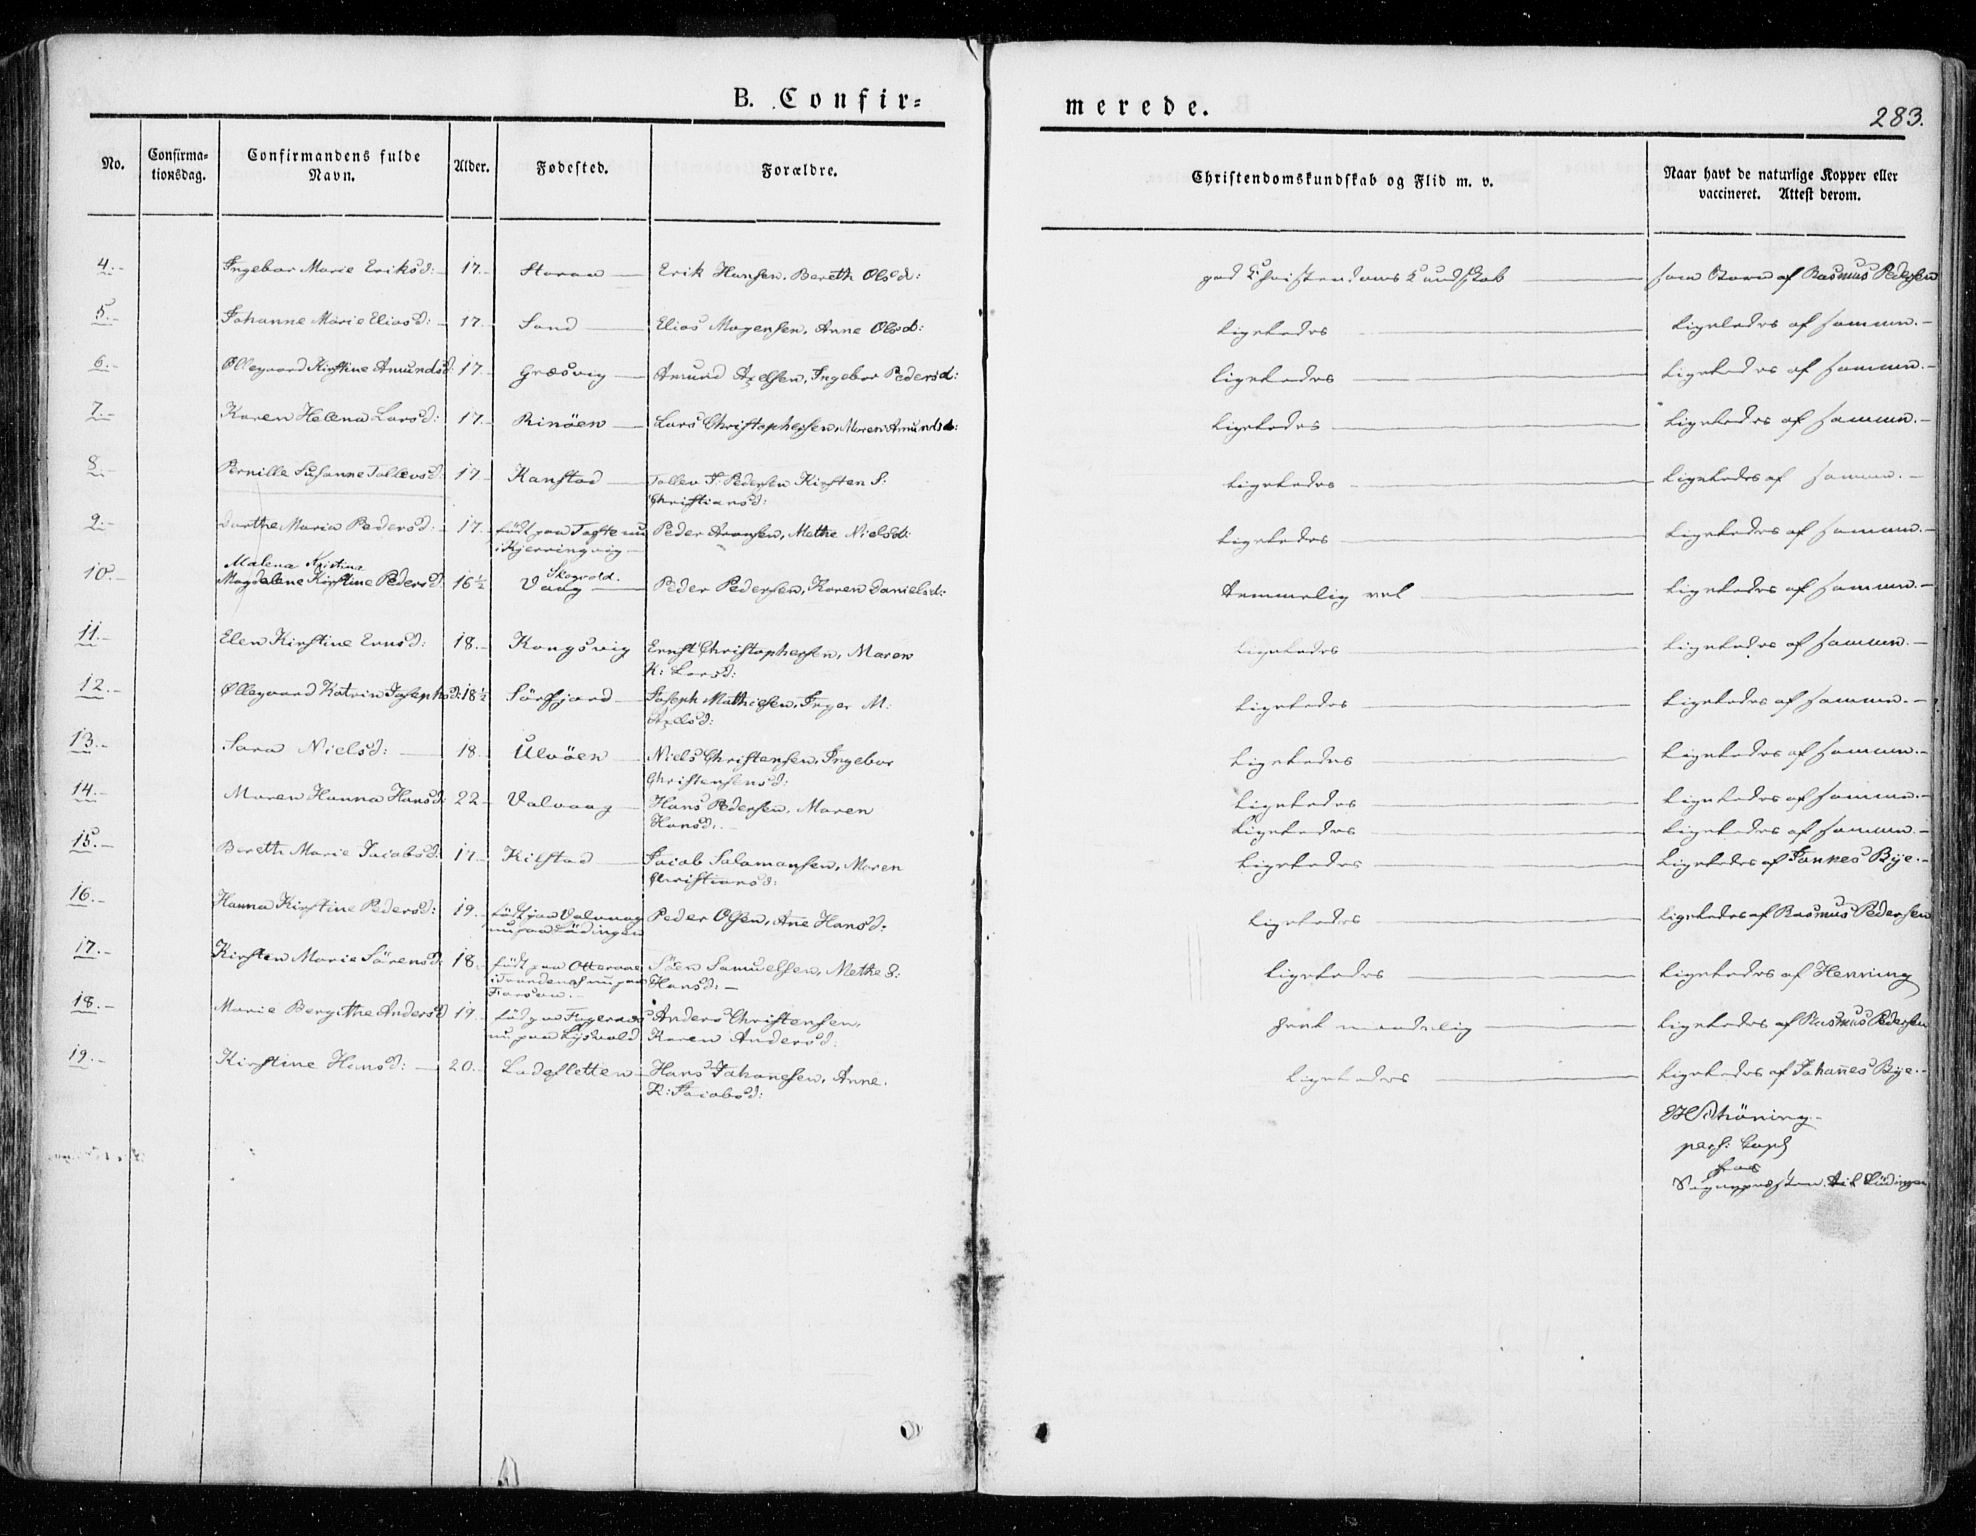 B. Confir=
merede.
283.
No. Confirma=tionsdag. Confirmandens fulde Navn. Alder. Fødested. Forældre. Christendomskundskab og Flid m. v. Naar havt de naturlige Kopper eller vaccineret. Attest derom.
4.- Ingebor Marie Eriksd: 17.- Erik Hansen, Bereth Olsd: god Christendoms Kundskab som Barn af Rasmus Pedersen
5.- Johanne Marie Eliasd: 17.- Sand Elias Mogensen, Anne Olsd: ligeledes ligeledes af samme.-
6.- Ollegaard Kirstine Amundsd. 17.- Græsvig Amund Axelsen, Ingebor Pedersd: ligeledes ligeledes af samme.-
7.- Karen Helena Larsd: 17.- Rinöen Lars Christophersen, Maren Amundsd: ligeledes ligeledes af samme.-
8.- Pernille Susanne Tollevsd: 17 Kanstad Tollev J. Pedersen Kirsten S:
Christiansd: ligeledes ligeledes af samme.-
9.- Dorthe Maria Pedersd: 17.- född paa Tofte nu
i Kjerringvig- Peder Aronsen, Methe Nielsd: ligeledes ligeledes af samme.-
Malena Kristina
10.- Magdalene Kirstine Pedersd: 16½ Skogvold.
Vaag Peder Pedersen, Karen Danielsd: temmelig vel ligeledes af samme.-
11.- Elen Kirstine Ernsd: 18.- Kongsvig Ernst Christophersen, Maren
K: Larsd: ligeledes ligeledes af samme.-
12.- Ollegaard Katrin Josephsd: 18½ Sörfjord Joseph Mathiesen, Inger M:
Axelsd: ligeledes ligeledes af samme.-
13.- Sara Nielsd: 18.- Ulvöen Niels Christensen, Ingebor
Christensend: ligeledes ligeledes af samme.-
14.- Maren Hanna Hansd: 22- Valvaag Hans Pedersen, Maren
Hansd:.- ligeledes ligeledes af samme.-
ligeledes ligeledes af samme.-
15.- Bereth Marie Jacobsd: 17.- Kilstad Jacob Salamonsen, Maren
Christiansd: ligeledes ligeledes af Johannes Bye.-
16.- Hanna Kirstine Pedersd: 19.- född paa Valvaag
nu paa Lödingen Peder Olsen, Ane Hansd: ligeledes ligeledes af Rasmus Pedersen
17.- Kirsten Marie Sörensd: 18.- född paa
nu paa Sören Samuelsen, Methe S:
Hansd:- ligeledes ligeledes af Henning
18.- Marie Bergithe Andersd 17.- född paa Fagernæs
nu paa Lysvold Anders Christensen,
Karen Andersd: ligeledes af Rasmus Pedersen
19.- Kirstine Hansd: 20.- Ladesletten Hans Johanesen, Anne
K: Jacobsd: ligeledes ligeledes af Johannes Bye.-
pers: Cap:
for
Sognepræsten til Lödingen